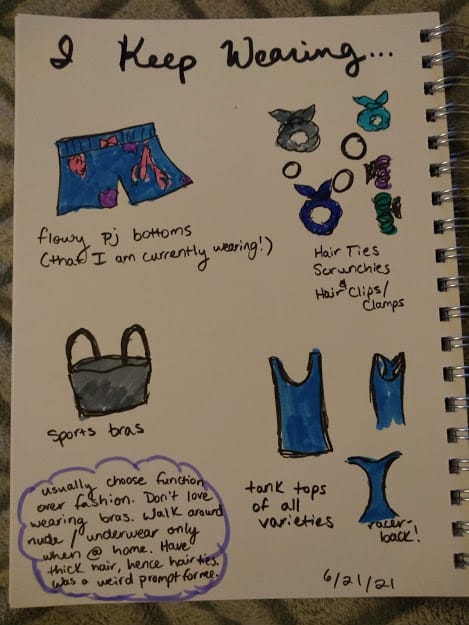 I Keep Wearing...
flowy Pj bottoms
(that I am currently wearing!)
Hair Ties
Scrunchies
&
Hair Clips/
Clamps
Sports bras
tank tops
of all
varieties
racer-
back!
usually choose function
over fashion. Don't love
wearing bras. Walk around
nude / underwear only
when @ home. Have
thick hair, hence hair ties.
was a weird prompt for me.
6/21/21